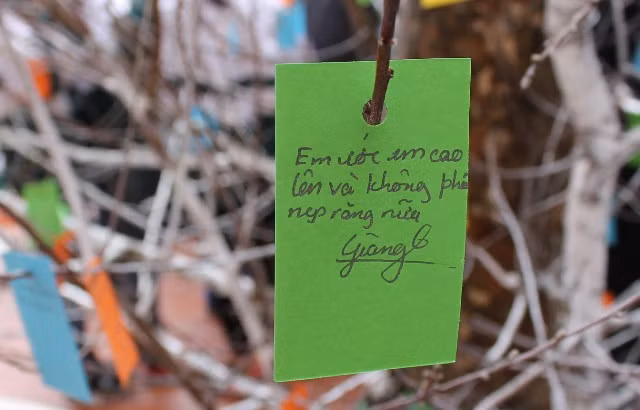 Em ước em cao
lên và không phải
nẹp răng nữa
Giang